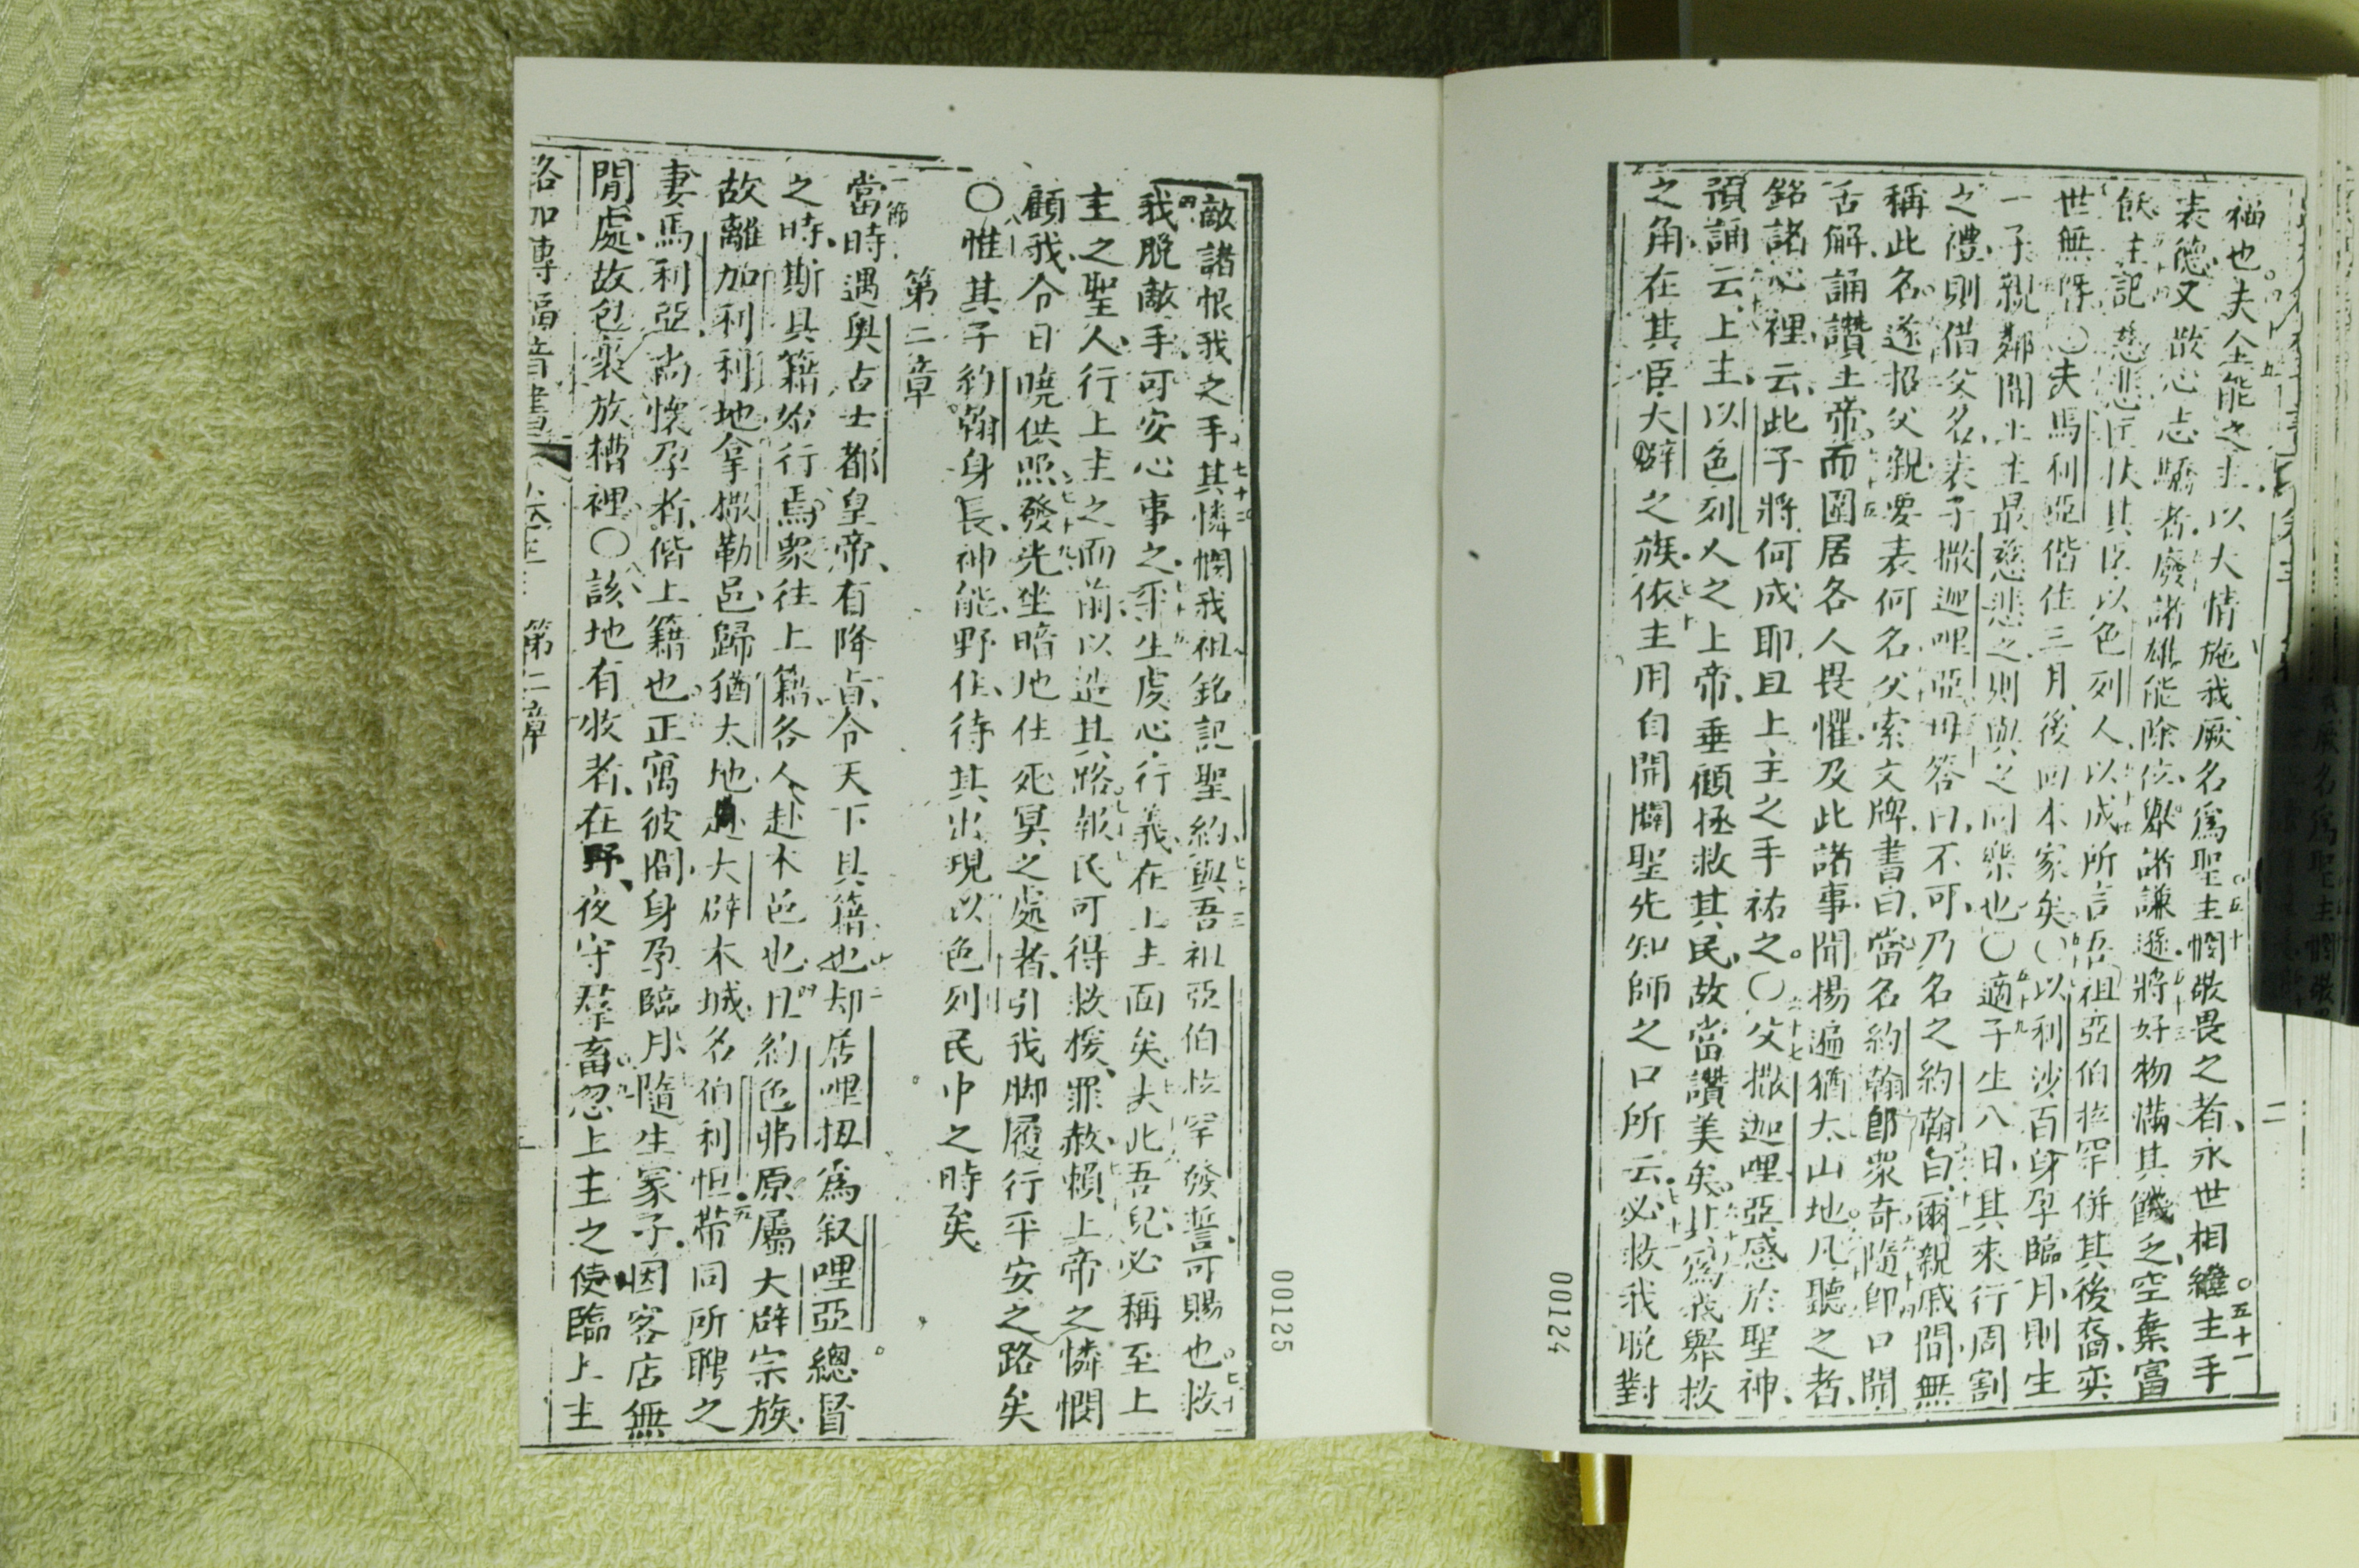 福也夫全能之主以大情施我厥名爲聖主憫敬畏之者永世相繼主手
表德又散心志驕者廢諸雄能除位舉諸謙遜將好物滿其饑乏空棄富
飫主記慈悲匡扶其臣以色列人以成所言吾祖亞伯拉罕併其後裔奕
世無暨〇夫馬利亞偕住三月後回本家矣〇以利沙百身孕臨月則生
一子親鄰聞上主最慈悲之則與之同樂也〇適子生八日其來行周割
之禮則借父名表子撒迦哩亞母答曰不可乃名之約翰曰爾親戚間無
稱此名遂招父親要表何名父索文牌書曰當名約翰卽衆奇隨卽口開
舌解誦讚上帝而圍居各人畏懼及此諸事開揚遍猶太山地凡聽之者
銘諸心裡云此子將何成耶且上主之手祐之〇父撒迦哩亞感於聖神
預誦云上主以色列人之上帝垂顧拯救其民故當讚美矣且爲我舉救
之角在其臣大辟之族依主用自開闢聖先知師之口所云必救我脫對
00124
敵諸恨我之手其憐憫我祖銘記聖約與吾祖亞伯拉罕發誓可賜也救
我脫敵手可安心事之平生虔心行義在上主面矣夫此吾兒必稱至上
主之聖人行上主之面前以造其路報民可得救援罪赦賴上帝之憐憫
顧我今日曉供照發光坐暗地住死冥之處者引我脚履行平安之路矣
〇惟其子約翰身長神能野住待其出現以色列民中之時矣
第二章
當時遇奧古士都皇帝有降旨令天下具籍也却居哩扭爲叙哩亞總督
之時斯具籍初行焉衆往上籍各人赴本邑也且約色弗原屬大辟宗族
故離加利利地拿撒勒邑歸猶太地赴大辟本城名伯利恒帶同所聘之
妻馬利亞尚懷孕者偕上籍也正寓彼間身孕臨月隨生冢子因客店無
閒處故包裹放槽裡〇該地有牧者在野夜守羣畜忽上主之使臨上主
路加傳福音書 卷三 第二章
00125